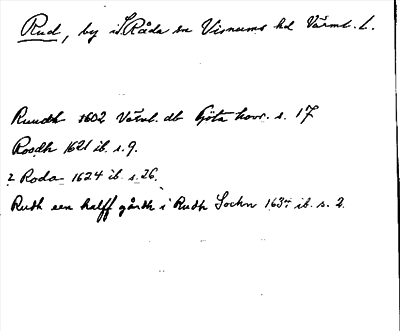 Rud, by i S. Råda sn Visnums hd Värml. l.
Ruudh 1602 Värml. db Göta hovr. s. 17
Roodh 1621 ib. s. 9.
2 Roda 1624 ib. s. 26.
Rudh een halff gårdh i Rudh Sochn 1634 ib. s. 2.